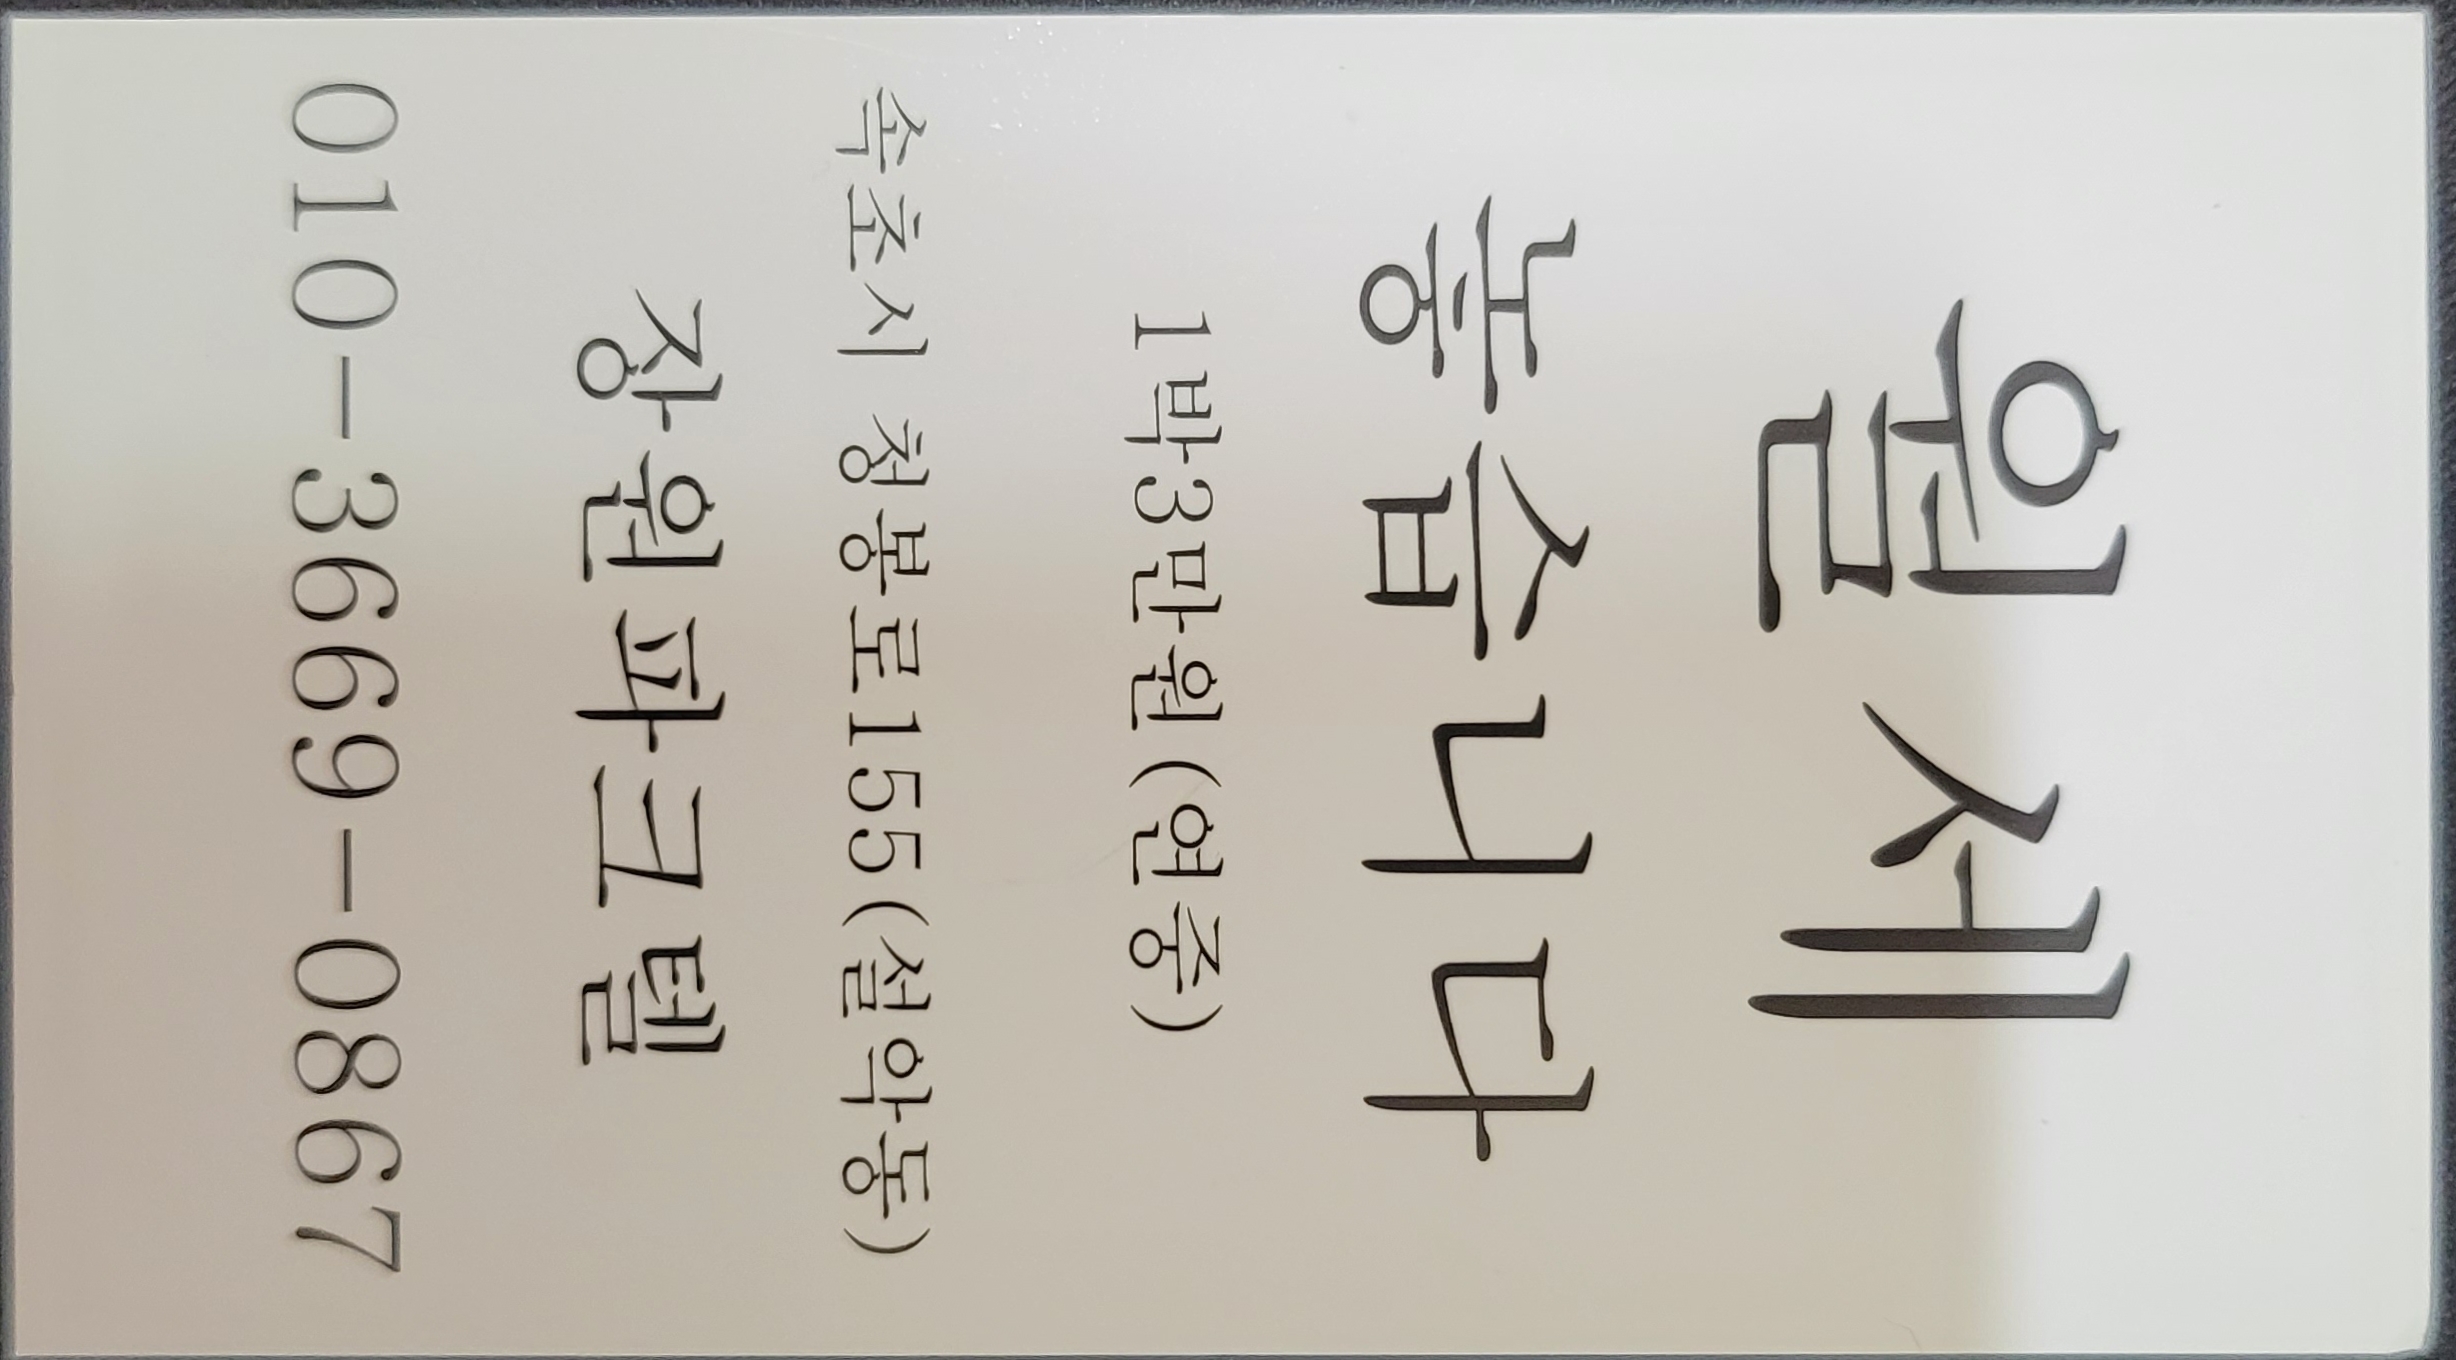 월 세
놓습니다
1박3만원(연중)
속초시 청봉로155(설악동)
장원파크텔
010-3669-0867